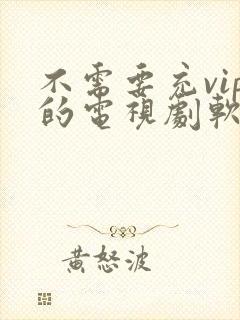 不需要充vip
的電視劇軟
黃怒波